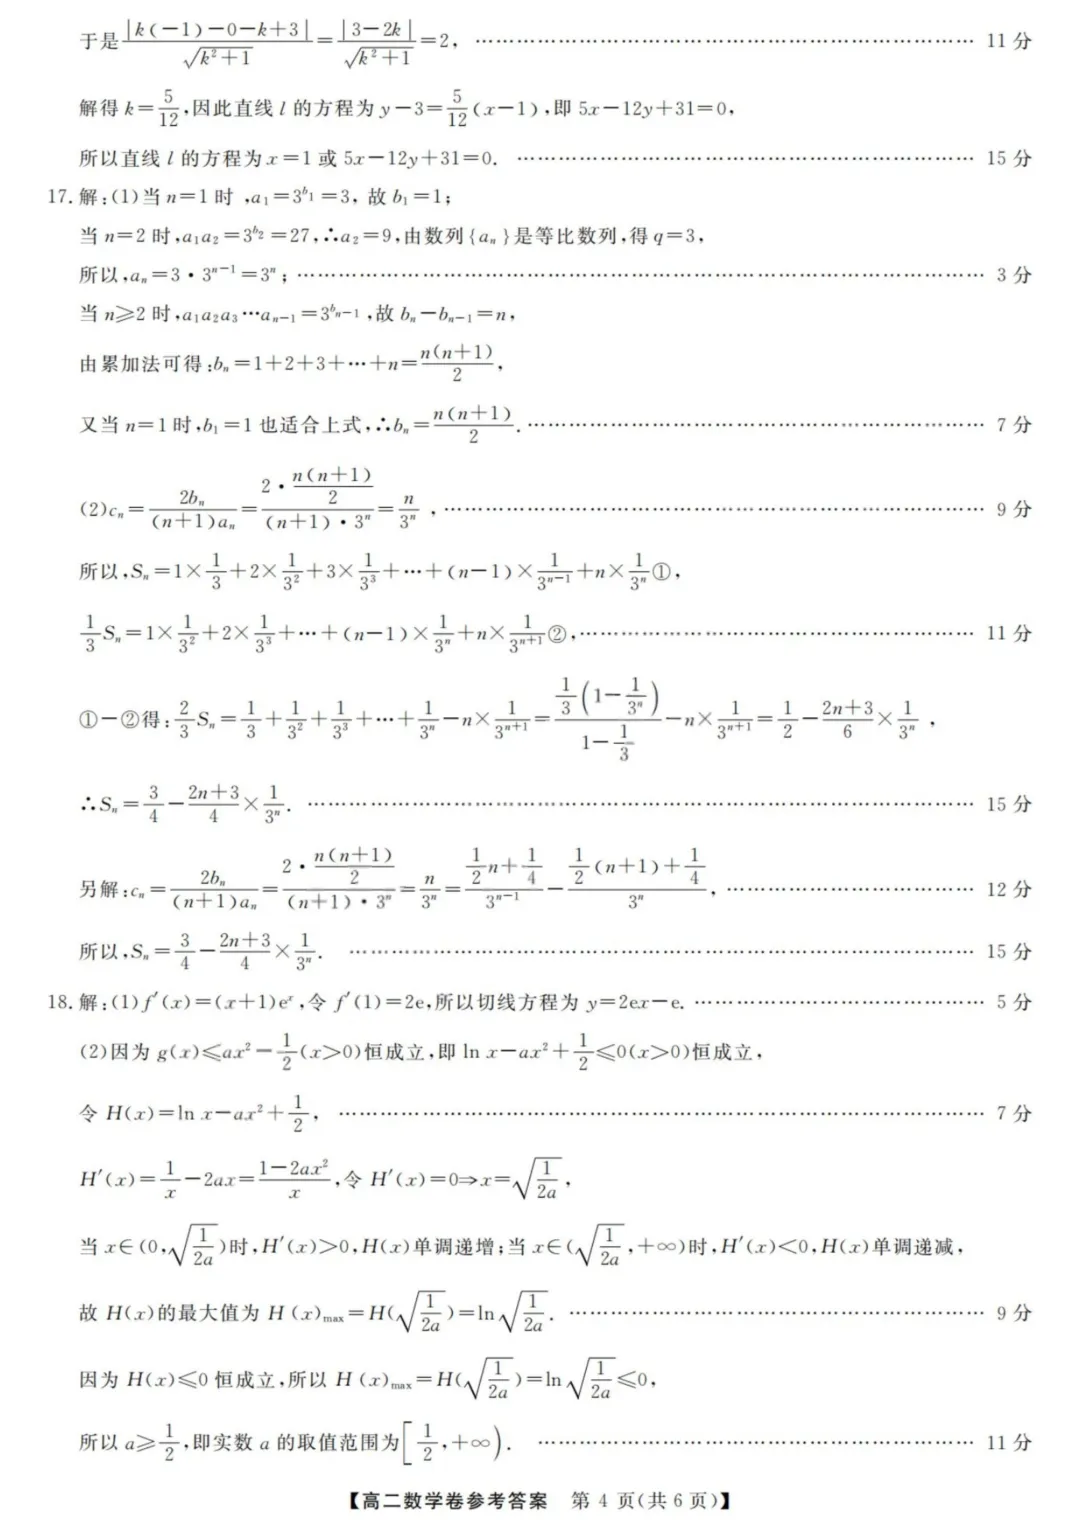 于是|k(-1)-0-k+3|/√(k²+1)=|3-2k|/√(k²+1)=2, …… 11 分
解得 k=5/12,因此直线 l 的方程为 y-3=5/12(x-1),即 5x-12y+31=0,
所以直线 l 的方程为 x=1 或 5x-12y+31=0. …… 15 分
17. 解:(1)当 n=1 时 ,a₁=3^{b₁}=3, 故 b₁=1;
当 n=2 时,a₁a₂=3^{b₂}=27,∴a₂=9,由数列{aₙ}是等比数列,得 q=3,
所以,aₙ=3·3^{n-1}=3ⁿ; …… 3 分
当 n≥2 时,a₁a₂a₃…a_{n-1}=3^{b_{n-1}},故 bₙ-b_{n-1}=n,
由累加法可得:bₙ=1+2+3+…+n=n(n+1)/2,
又当 n=1 时,b₁=1 也适合上式,∴bₙ=n(n+1)/2. …… 7 分
(2)cₙ=2bₙ/((n+1)aₙ)=(2·n(n+1)/2)/((n+1)·3ⁿ)=n/3ⁿ , …… 9 分
所以,Sₙ=1×1/3+2×1/3²+3×1/3³+…+(n-1)×1/3^{n-1}+n×1/3ⁿ①,
1/3Sₙ=1×1/3²+2×1/3³+…+(n-1)×1/3ⁿ+n×1/3^{n+1}②, …… 11 分
①-②得:2/3Sₙ=1/3+1/3²+1/3³+…+1/3ⁿ-n×1/3^{n+1}=(1/3(1-1/3ⁿ))/(1-1/3)-n×1/3^{n+1}=1/2-(2n+3)/6×1/3ⁿ ,
∴Sₙ=3/4-(2n+3)/4×1/3ⁿ. …… 15 分
另解:cₙ=2bₙ/((n+1)aₙ)=(2·n(n+1)/2)/((n+1)·3ⁿ)=n/3ⁿ=(1/2n+1/4)/3^{n-1}-(1/2(n+1)+1/4)/3ⁿ, …… 12 分
所以,Sₙ=3/4-(2n+3)/4×1/3ⁿ. …… 15 分
18. 解:(1)f′(x)=(x+1)eˣ,令 f′(1)=2e,所以切线方程为 y=2ex-e. …… 5 分
(2)因为 g(x)≤ax²-1/2(x>0)恒成立,即 ln x-ax²+1/2≤0(x>0)恒成立,
令 H(x)=ln x-ax²+1/2, …… 7 分
H′(x)=1/x-2ax=(1-2ax²)/x,令 H′(x)=0⇒x=√(1/2a),
当 x∈(0,√(1/2a))时,H′(x)>0,H(x)单调递增;当 x∈(√(1/2a),+∞)时,H′(x)<0,H(x)单调递减,
故 H(x)的最大值为 H(x)max=H(√(1/2a))=ln√(1/2a). …… 9 分
因为 H(x)≤0 恒成立,所以 H(x)max=H(√(1/2a))=ln√(1/2a)≤0,
所以 a≥1/2,即实数 a 的取值范围为[1/2,+∞). …… 11 分
【高二数学卷参考答案 第 4 页(共 6 页)】